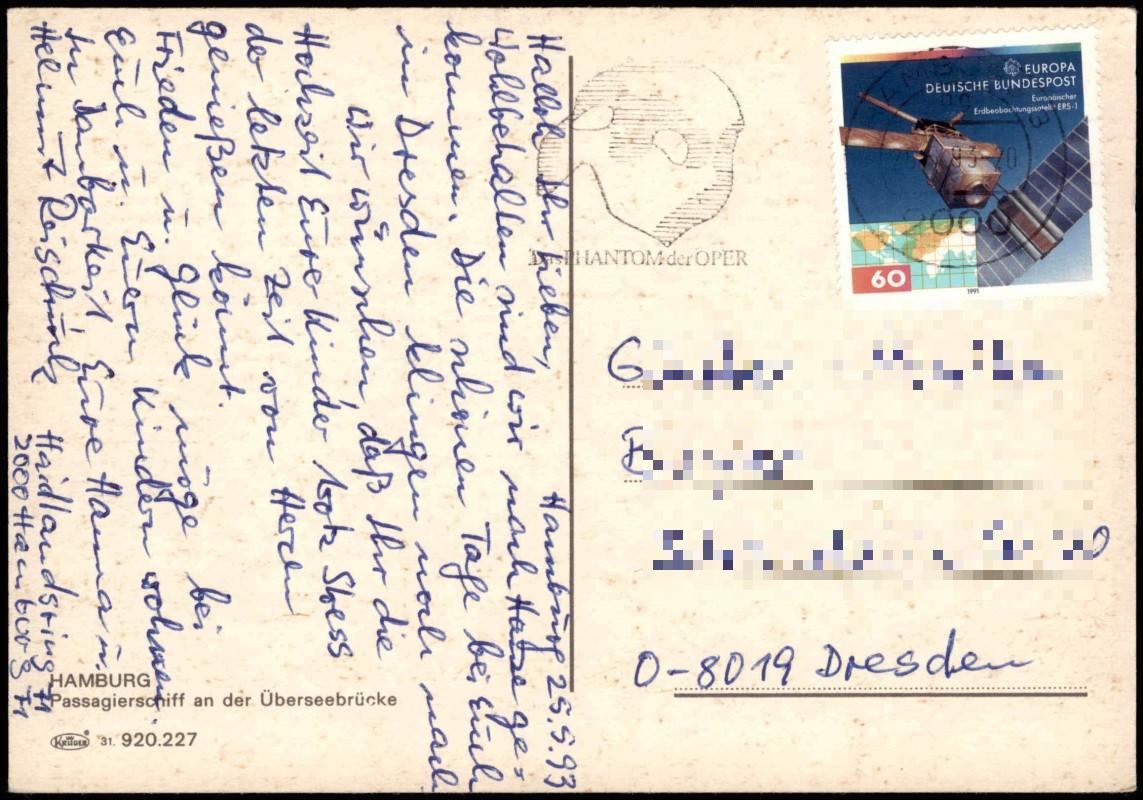 Hamburg 25.5.93
Hallo Ihr Lieben,
Wohlbehalten sind wir nach Hause ge-
kommen. Die schönen Tage bei Euch
in Dresden klingen noch nach
Wir wünschen, daß Ihr die
Hochzeit Eure Kinder trotz Stress
der letzten Zeit von Herzen
genießen könnt.
Frieden u. Glück möge bei
Euch u. Euern Kindern wohnen.
In Dankbarkeit Eure Hanna u.
Helmut
2000 Hamburg 71
HAMBURG
Passagierschiff an der Überseebrücke
KRÜGER 31. 920.227
Das PHANTOM der OPER
EUROPA
DEUTSCHE BUNDESPOST
Europäischer
Erdbeobachtungssatellit ERS-1
60
1991
2000
O-8019 Dresden